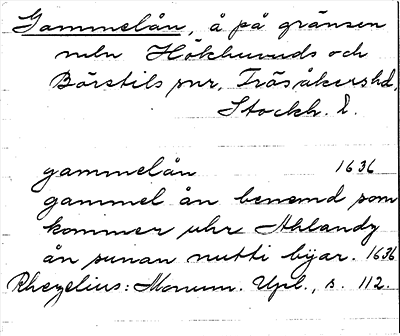 Gammelån, å på gränsen
mln Hökhuvuds och
Börstils snr, Frösåkers hd,
Stockh. l.
gammelån 1636
gammel ån benemd som
kommer uhr Ahlandz
ån sunan nutti byar. 1636
Rhezelius: Monum. Upl., s. 112.